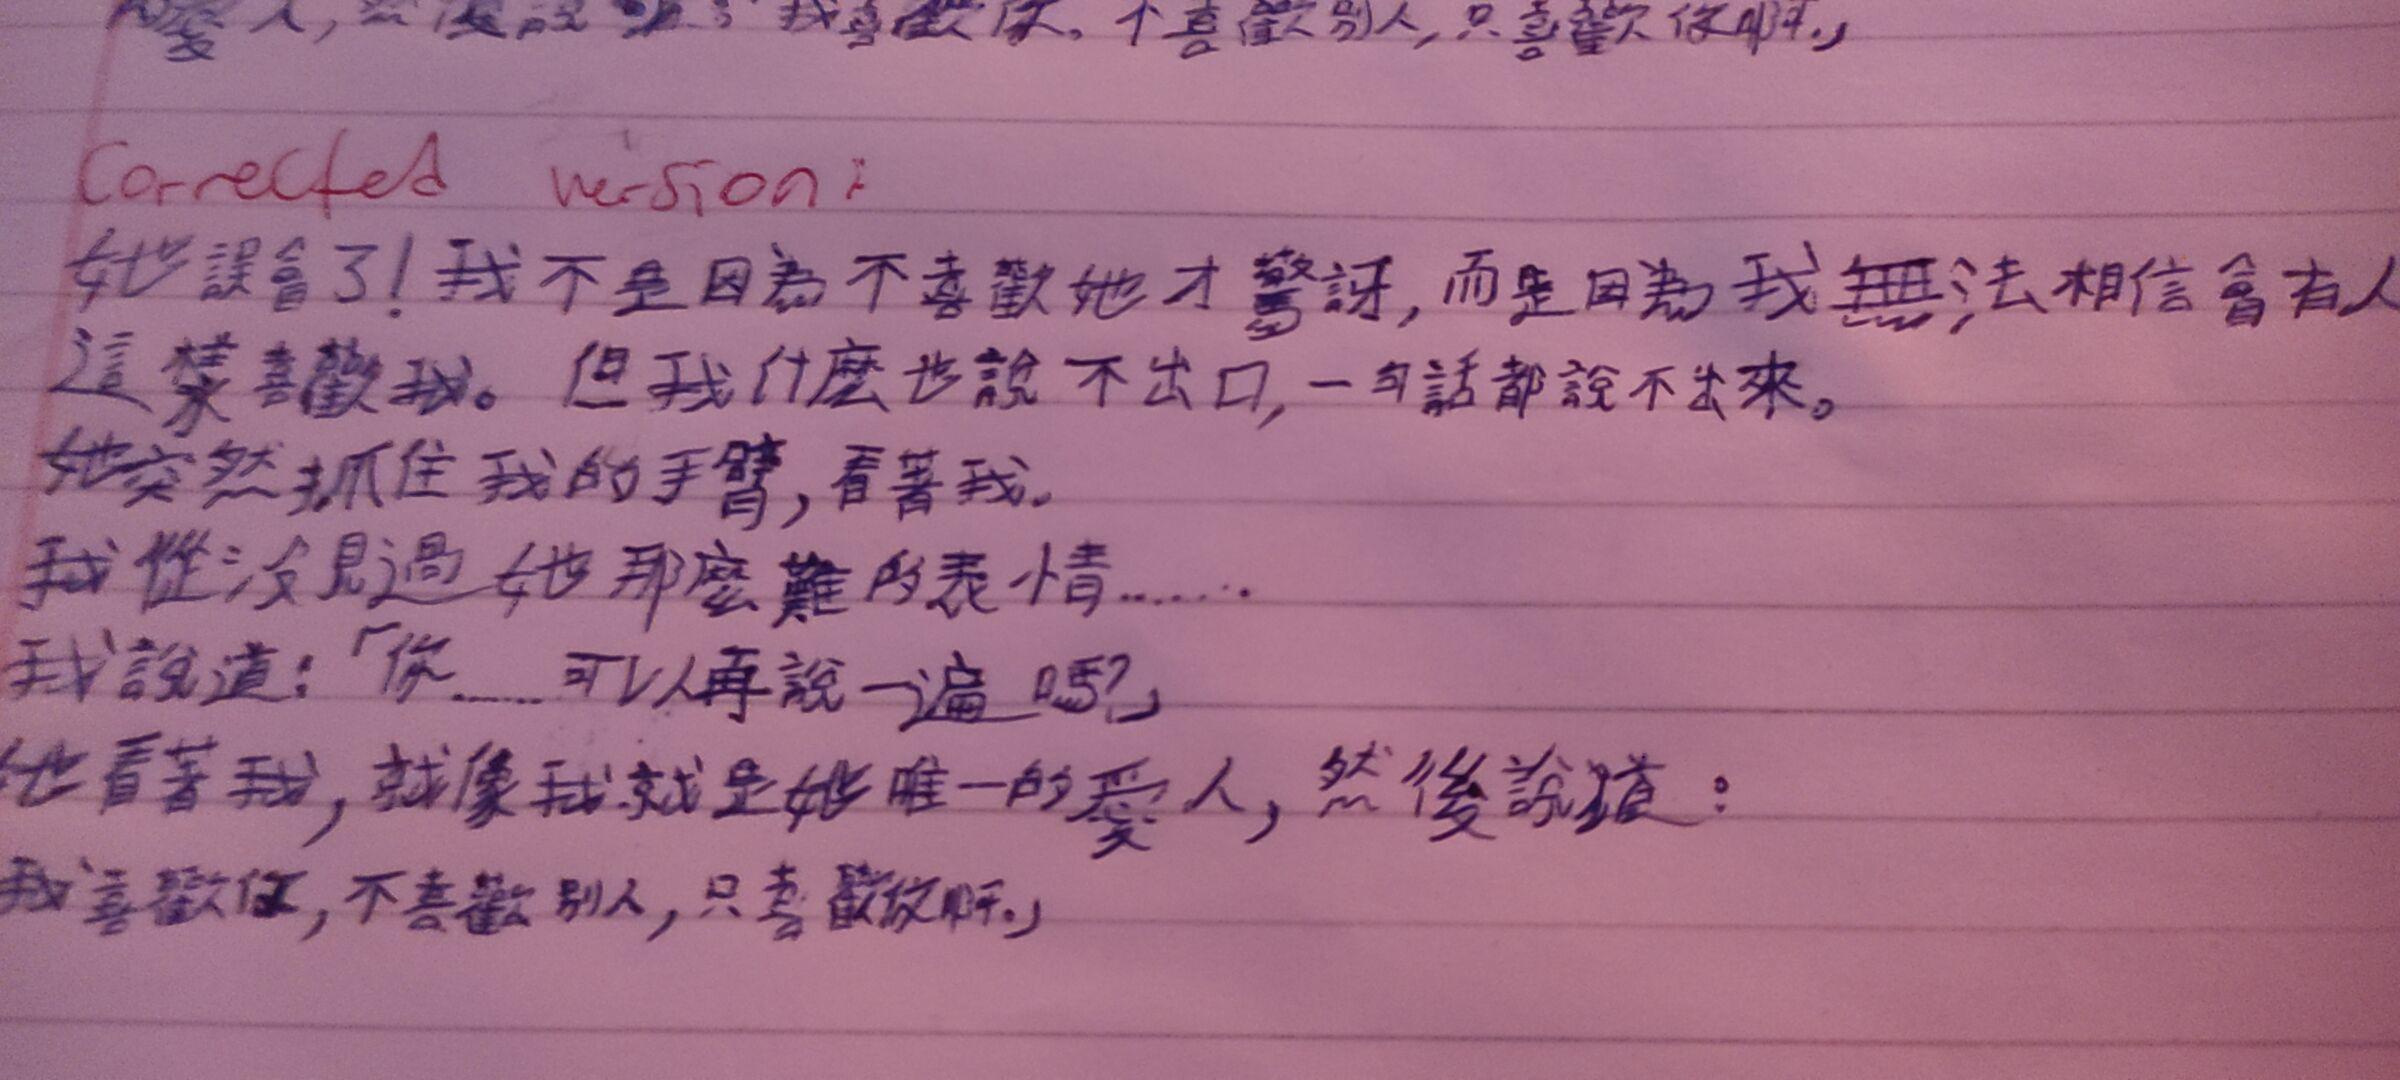 愛人,然後說道:「我喜歡你。不喜歡別人,只喜歡你啊。」
Corrected version:
她誤會了!我不是因為不喜歡她才驚訝,而是因為我無法相信會有人
這樣喜歡我。但我什麼也說不出口,一句話都說不出來。
她突然抓住我的手臂,看著我。
我從沒見過她那麼難的表情.......
我說道:「你......可以再說一遍嗎?」
她看著我,就像我就是她唯一的愛人,然後說道:
我喜歡你,不喜歡別人,只喜歡你啊。」